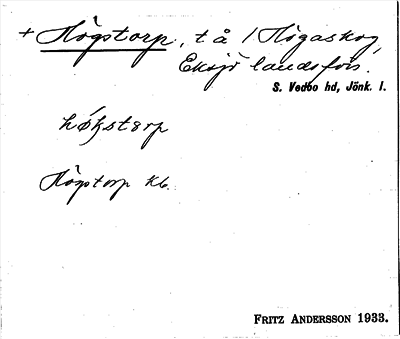 + Högstorp, t å /Högaskog,
Eksjö landsförs.
S. Vedbo hd, Jönk. l.
Högstorp kb.
FRITZ ANDERSSON 1933.